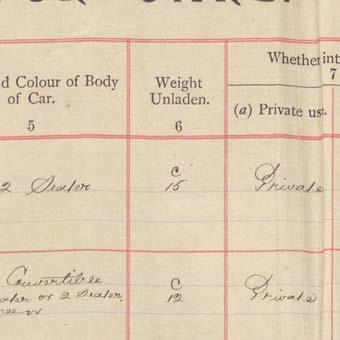 d Colour of Body
of Car.
5
Weight
Unladen.
6
Whether int
7
(a) Private us
2 Seater
c
15
Private
Convertible
ater or 2 Seater,
c
12
Private